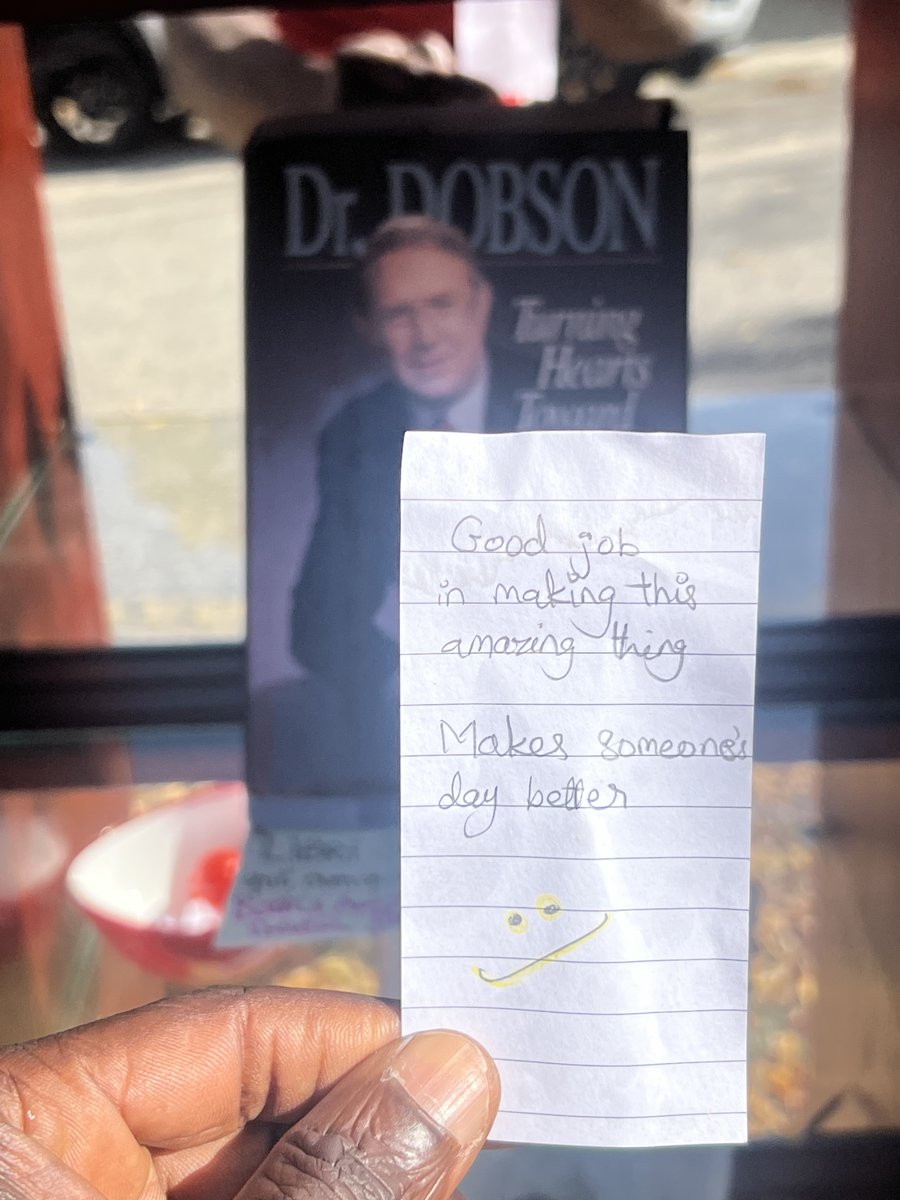 Dr. DOBSON
Turning
Hearts
Toward
Good job
in making this
amazing thing
Makes someone's
day better